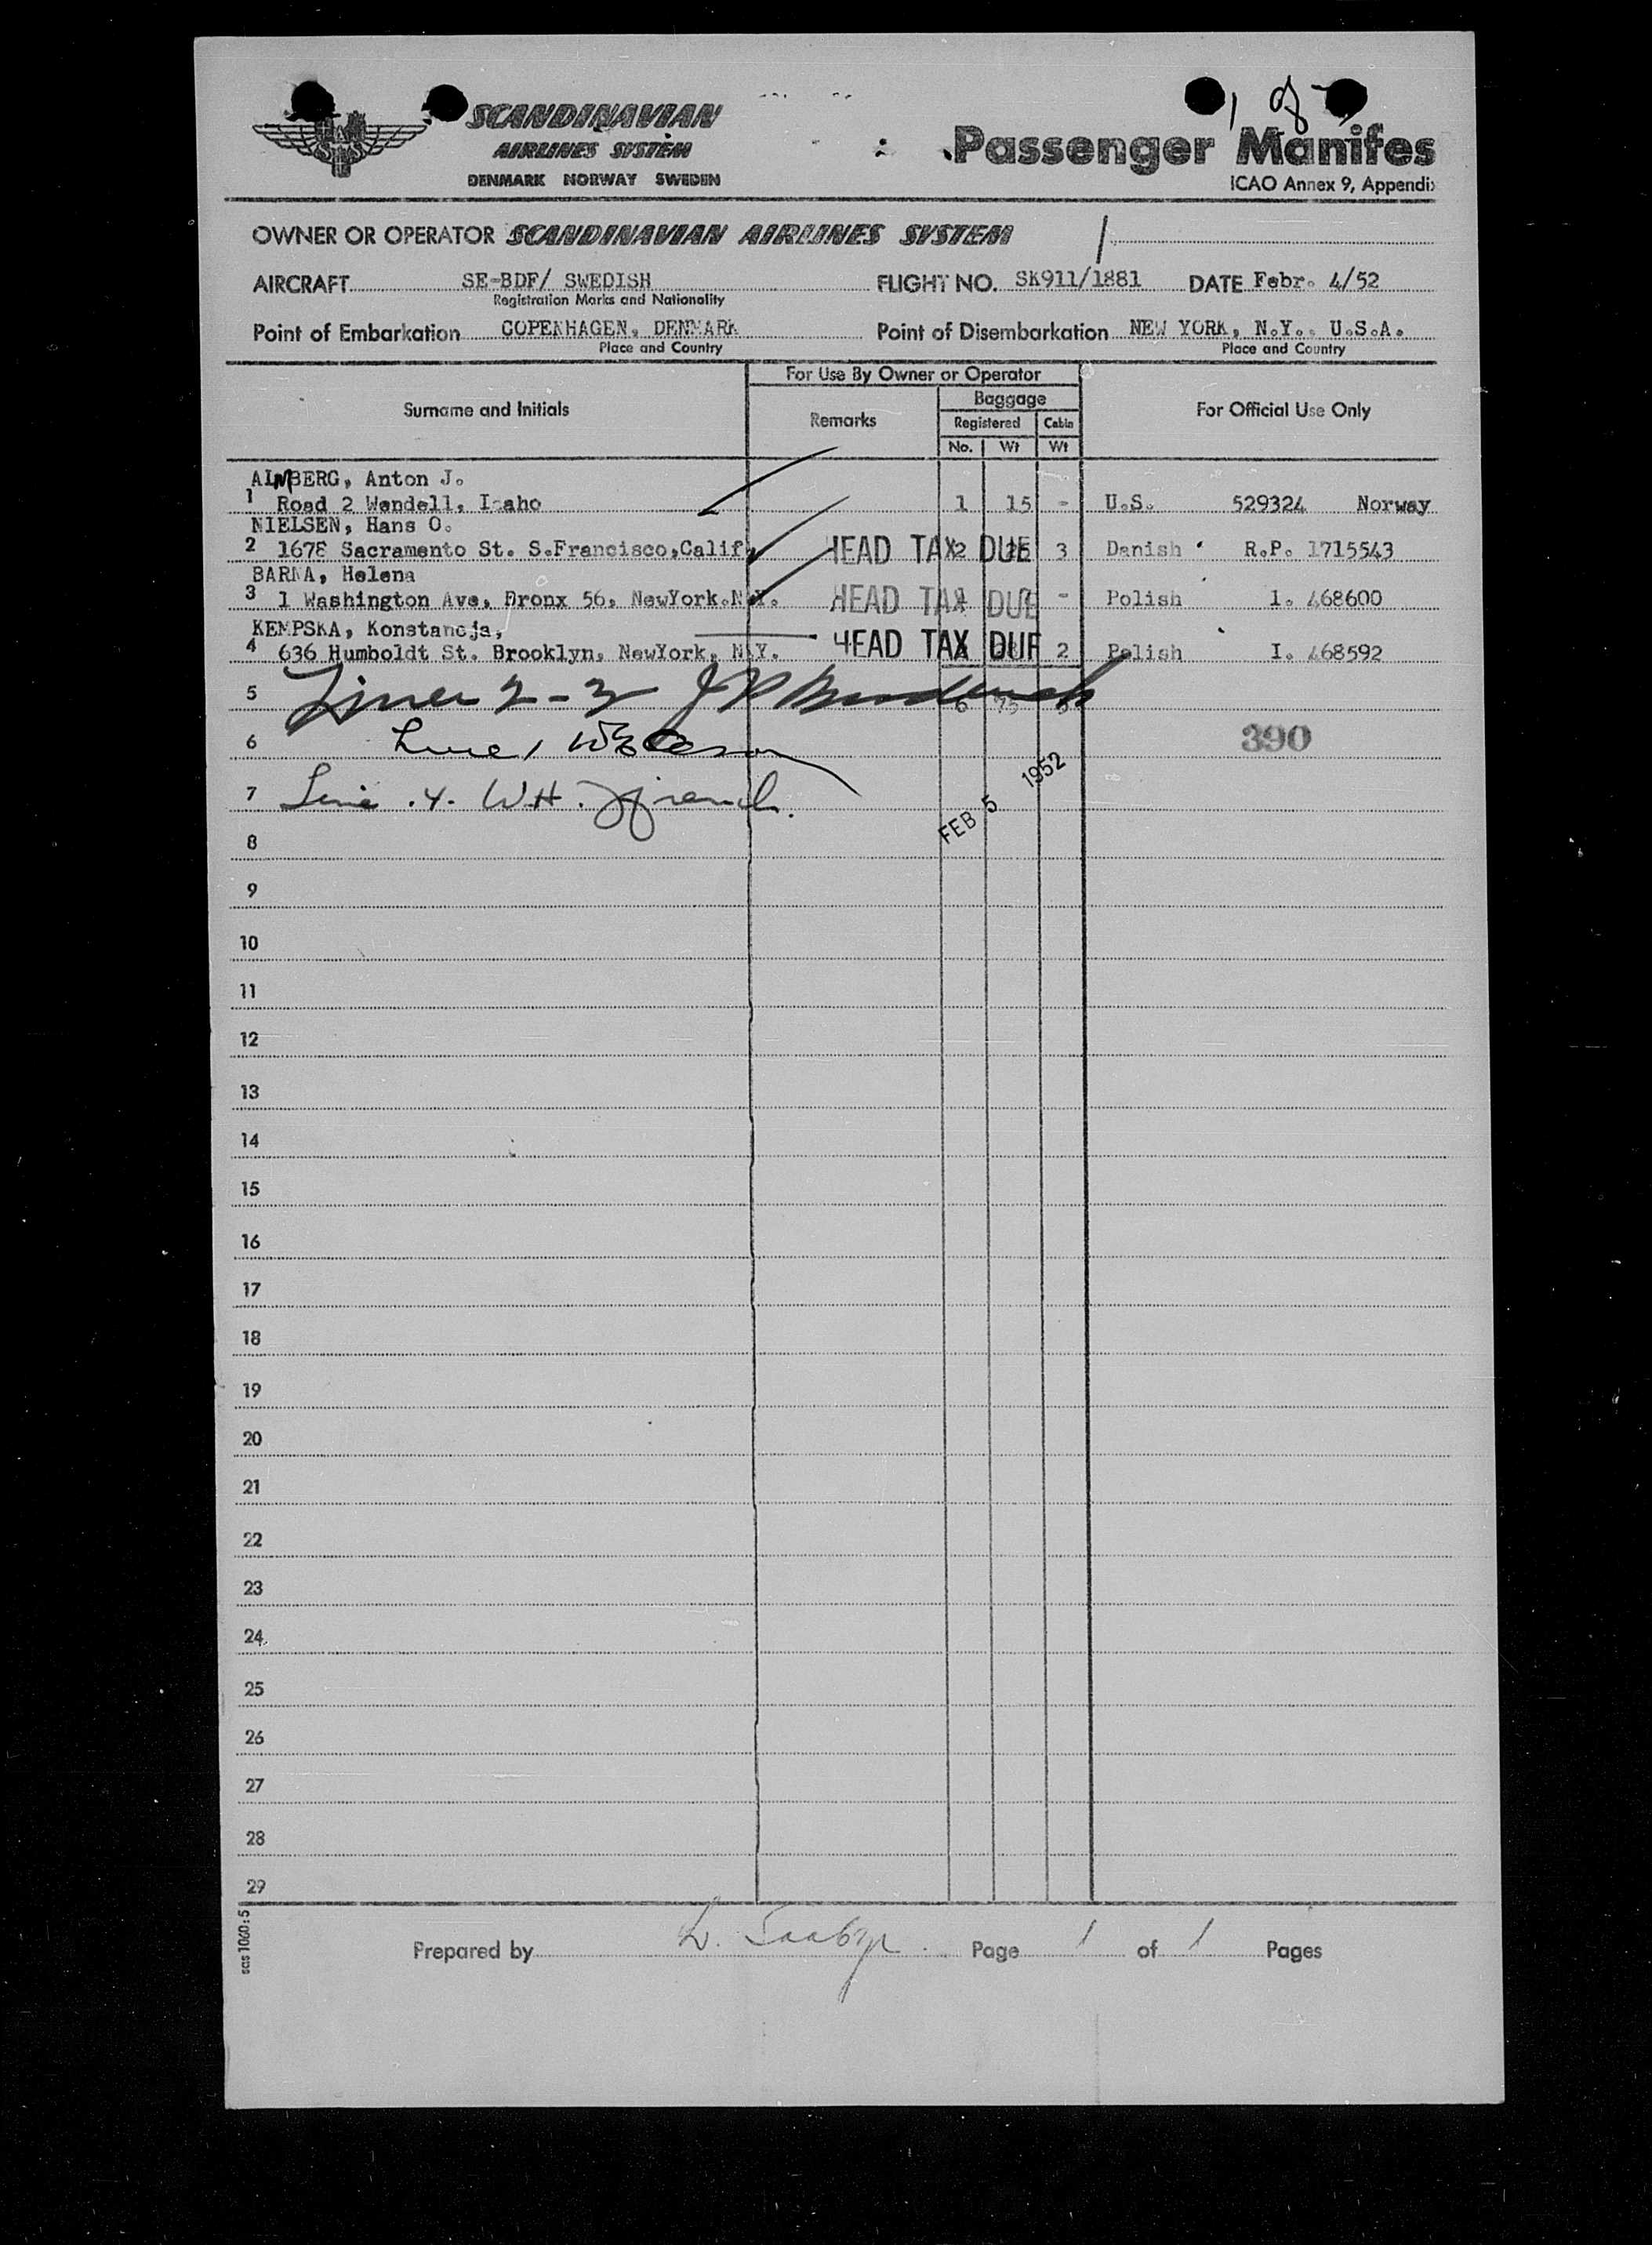 1 of
SCANDINAVIAN
AIRLINES SYSTEM
DENMARK NORWAY SWEDEN
SAS
Passenger Manifes
ICAO Annex 9, Appendi
OWNER OR OPERATOR SCANDINAVIAN AIRLINES SYSTEM
AIRCRAFT SE-BDF/ SWEDISH FLIGHT NO. SK911/1881 DATE Febr. 4/52
Registration Marks and Nationality
Point of Embarkation COPENHAGEN, DENMARK Point of Disembarkation NEW YORK, N.Y., U.S.A.
Place and Country Place and Country
For Use By Owner or Operator
Surname and Initials Remarks Baggage For Official Use Only
Registered Cabin
No. Wt Wt
ALMBERG, Anton J.
1 Road 2 Wendell, Idaho 1 15 - U.S. 529324 Norway
NIELSEN, Hans O.
2 1678 Sacramento St. S.Francisco,Calif. HEAD TAX DUE 2 3 Danish R.P. 1715543
BARNA, Helena
3 1 Washington Ave, Bronx 56, NewYork.N.Y. HEAD TAX DUE - Polish I. 468600
KEMPSKA, Konstancja,
4 636 Humboldt St. Brooklyn, NewYork, N.Y. HEAD TAX DUE 2 Polish I. 468592
5 Lines 2-3 J P 6 75 5
6 Line 1 390
7 Line 4. W H. French.
FEB 5 1952
8
9
10
11
12
13
14
15
16
17
18
19
20
21
22
23
24
25
26
27
28
29
sas 1060:5
Prepared by Page 1 of 1 Pages